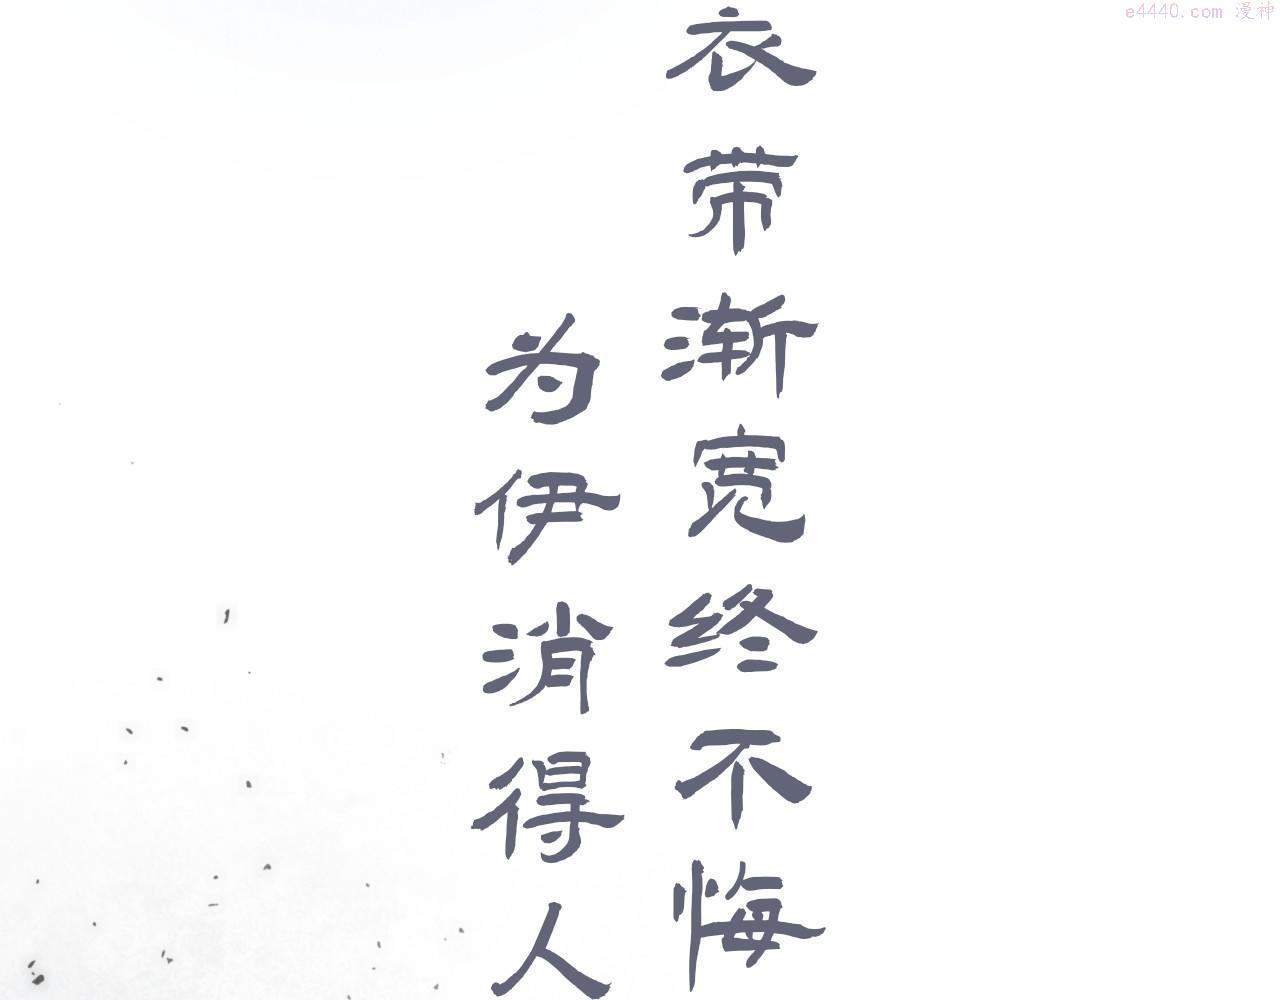 e4440.com 漫神
衣带渐宽终不悔
为伊消得人